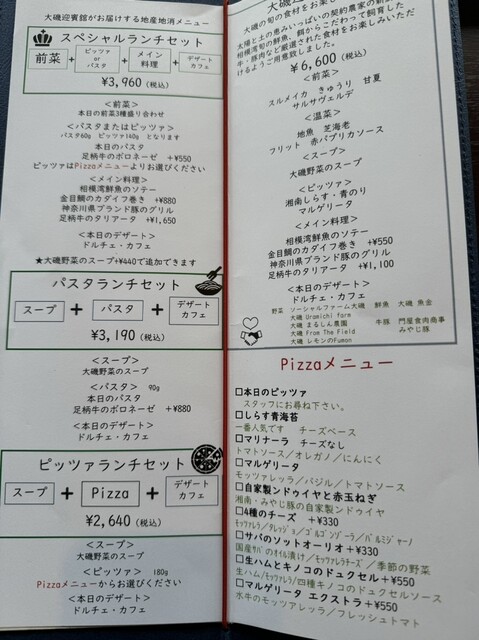 大磯迎賓館がお届けする地産地消メニュー
スペシャルランチセット
前菜 + ピッツァ or パスタ + メイン料理 + デザート カフェ
¥3,960（税込）
＜前菜＞
本日の前菜3種盛り合わせ
＜パスタまたはピッツァ＞
パスタ60g ピッツァ160g となります
本日のパスタ
足柄牛のボロネーゼ +¥550
ピッツァはPizzaメニューよりお選びください
＜メイン料理＞
相模湾鮮魚のソテー
金目鯛のカダイフ巻き +¥880
神奈川県ブランド豚のグリル
足柄牛のタリアータ +¥1,650
＜本日のデザート＞
ドルチェ・カフェ
★大磯野菜のスープ+¥440で追加できます
パスタランチセット
スープ + パスタ + デザート カフェ
¥3,190（税込）
＜スープ＞
大磯野菜のスープ
＜パスタ＞ 90g
本日のパスタ
足柄牛のボロネーゼ +¥880
＜本日のデザート＞
ドルチェ・カフェ
ピッツァランチセット
スープ + Pizza + デザート カフェ
¥2,640（税込）
＜スープ＞
大磯野菜のスープ
＜ピッツァ＞ 180g
Pizzaメニューからお選びください
＜本日のデザート＞
ドルチェ・カフェ
大磯の旬の食材をお楽し
太陽と土の恵みいっぱいの契約農家の新鮮
相模湾旬の鮮魚、餌からこだわって飼育した
牛・豚肉など厳選された食材をお楽しみいただ
けるようご用意致しました。
¥6,600（税込）
＜前菜＞
スルメイカ きゅうり 甘夏
サルサヴェルデ
＜温菜＞
地魚 芝海老
フリット 赤パプリカソース
＜スープ＞
大磯野菜のスープ
＜ピッツァ＞
湘南しらす・青のり
マルゲリータ
＜メイン料理＞
相模湾鮮魚のソテー
金目鯛のカダイフ巻き+¥550
神奈川県ブランド豚のグリル
足柄牛のタリアータ +¥1,100
＜本日のデザート＞
ドルチェ・カフェ
野菜 ソーシャルファーム大磯 鮮魚 大磯 魚金
大磯 Uramichi farm 牛豚 門屋食肉商事
大磯 まるしん農園 みやじ豚
大磯 From The Field
大磯 レモンのFumon
Pizzaメニュー
□本日のピッツァ
スタッフにお尋ね下さい。
□しらす青海苔
一番人気です チーズベース
□マリナーラ チーズなし
トマトソース／オレガノ／にんにく
□マルゲリータ
モッツァレッラ／バジル／トマトソース
□自家製ンドゥイヤと赤玉ねぎ
湘南・みやじ豚の自家製ンドゥイヤ
□4種のチーズ +¥330
モッツァレラ／タレッジョ／ゴルゴンゾーラ／パルミジャーノ
□サバのソットオーリオ+¥330
国産サバのオイル漬け／モッツァレラチーズ／季節の野菜
□生ハムとキノコのデュクセル+¥550
生ハム／モッツァレラ／四種キノコのデュクセルソース
□マルゲリータ エクストラ+¥550
水牛のモッツァレラ／フレッシュトマト